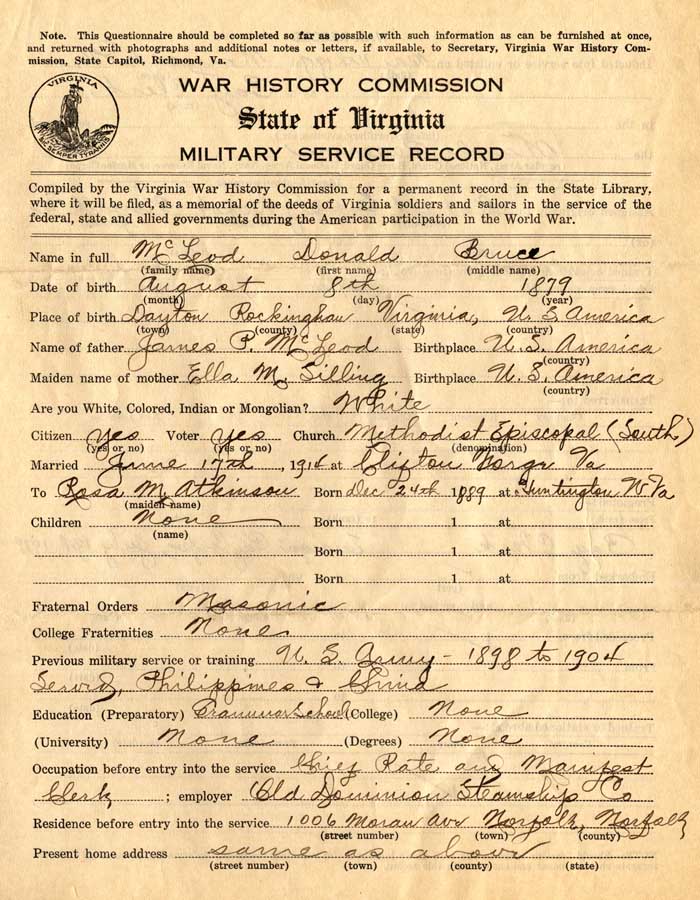 Note. This Questionnaire should be completed so far as possible with such information as can be furnished at once,
and returned with photographs and additional notes or letters, if available, to Secretary, Virginia War History Com-
mission, State Capitol, Richmond, Va.
VIRGINIA
SIC SEMPER TYRANNIS
WAR HISTORY COMMISSION
State of Virginia
MILITARY SERVICE RECORD
Compiled by the Virginia War History Commission for a permanent record in the State Library,
where it will be filed, as a memorial of the deeds of Virginia soldiers and sailors in the service of the
federal, state and allied governments during the American participation in the World War.
Name in full McLeod Donald Bruce
(family name) (first name) (middle name)
Date of birth August 8th 1879
(month) (day) (year)
Place of birth Dayton Rockingham Virginia, U. S. America
(town) (county) (state) (country)
Name of father James P. McLeod Birthplace U. S. America
(country)
Maiden name of mother Ella M. Silling Birthplace U. S. America
(country)
Are you White, Colored, Indian or Mongolian? White
Citizen yes Voter yes Church Methodist Episcopal (South)
(yes or no) (yes or no) (denomination)
Married June 17th, 1914 at Clifton Forge Va
To Rosa M. Atkinson Born Dec 24th 1889 at Huntington W Va
(maiden name)
Children None Born 1 at
(name)
Born 1 at
Born 1 at
Fraternal Orders Masonic
College Fraternities None
Previous military service or training U. S. Army - 1898 to 1904
Served, Philippines & China
Education (Preparatory) Grammar School (College) None
(University) None (Degrees) None
Occupation before entry into the service Chief Rate and Manifest
Clerk ; employer Old Dominion Steamship Co
Residence before entry into the service 1006 Moran Ave Norfolk, Norfolk
(street number) (town) (county)
Present home address same as above
(street number) (town) (county) (state)